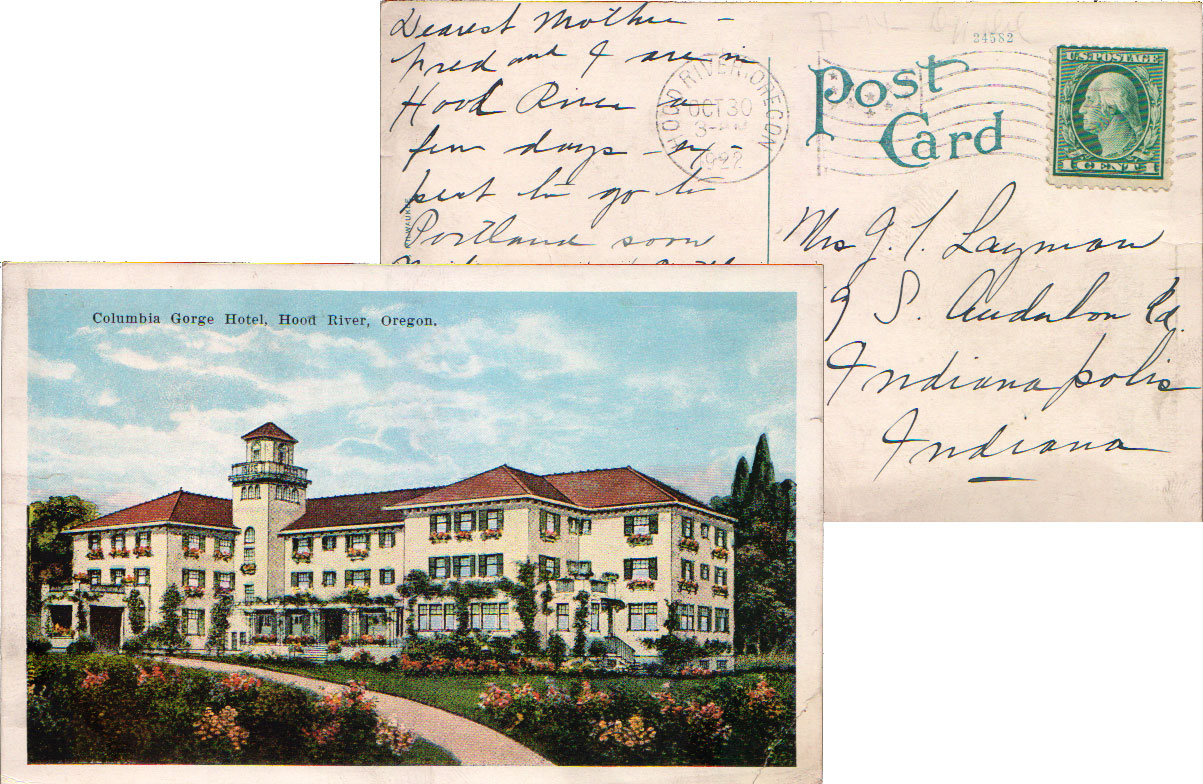 Dearest Mother –
Fred and I are in
Hood River a
few days – ex-
pect to go to
Portland soon
MILWAUKEE
HOOD RIVER, OREGON
OCT 30
1922
24582
Post
Card
U.S. POSTAGE
1 CENT 1
Mrs J. T. Layman
9 S. Audubon Rd.
Indianapolis
Indiana
Columbia Gorge Hotel, Hood River, Oregon.